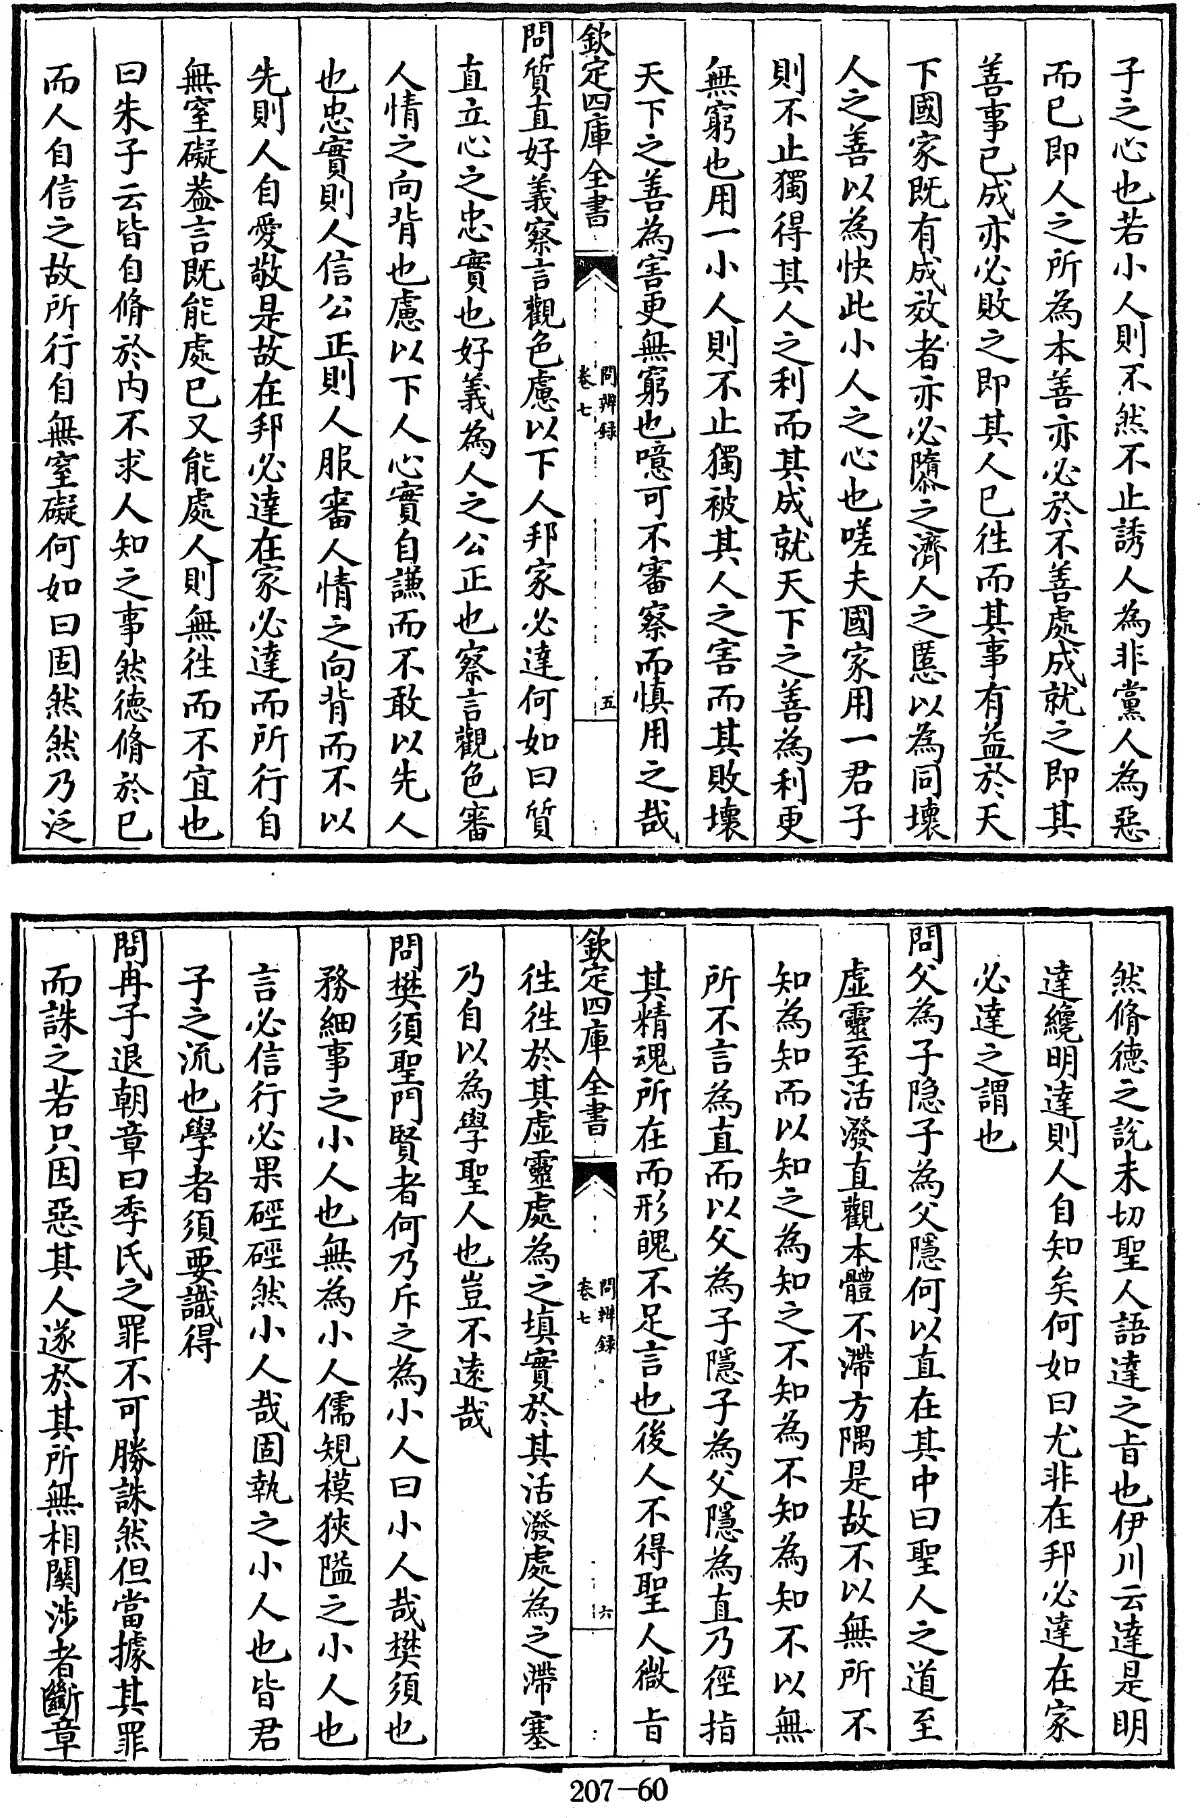 子之心也若小人則不然不止誘人為非黨人為惡
而已即人之所為本善亦必於不善處成就之即其
善事已成亦必敗之即其人已徃而其事有益於天
下國家既有成效者亦必隳之濟人之慝以為同壞
人之善以為快此小人之心也嗟夫國家用一君子
則不止獨得其人之利而其成就天下之善為利更
無窮也用一小人則不止獨被其人之害而其敗壞
天下之善為害更無窮也噫可不審察而慎用之哉
欽定四庫全書
問辨録
卷七
五
問質直好義察言觀色慮以下人邦家必達何如曰質
直立心之忠實也好義為人之公正也察言觀色審
人情之向背也慮以下人心實自謙而不敢以先人
也忠實則人信公正則人服審人情之向背而不以
先則人自愛敬是故在邦必達在家必達而所行自
無窒礙葢言既能處已又能處人則無徃而不宜也
曰朱子云皆自脩於内不求人知之事然德脩於已
而人自信之故所行自無窒礙何如曰固然然乃泛
然脩德之說未切聖人語達之㫖也伊川云達是明
達纔明達則人自知矣何如曰尤非在邦必達在家
必達之謂也
問父為子隐子為父隱何以直在其中曰聖人之道至
虛靈至活潑直觀本體不滯方隅是故不以無所不
知為知而以知之為知之不知為不知為知不以無
所不言為直而以父為子隱子為父隱為直乃徑指
其精魂所在而形魄不足言也後人不得聖人微㫖
欽定四庫全書
問辨録
卷七
六
徃徃於其虛靈處為之填實於其活潑處為之滯塞
乃自以為學聖人也豈不遠哉
問樊須聖門賢者何乃斥之為小人曰小人哉樊須也
務細事之小人也無為小人儒規模狹隘之小人也
言必信行必果硜硜然小人哉固執之小人也皆君
子之流也學者須要識得
問冉子退朝章曰季氏之罪不可勝誅然但當據其罪
而誅之若只因惡其人遂於其所無相關涉者斷章
207-60